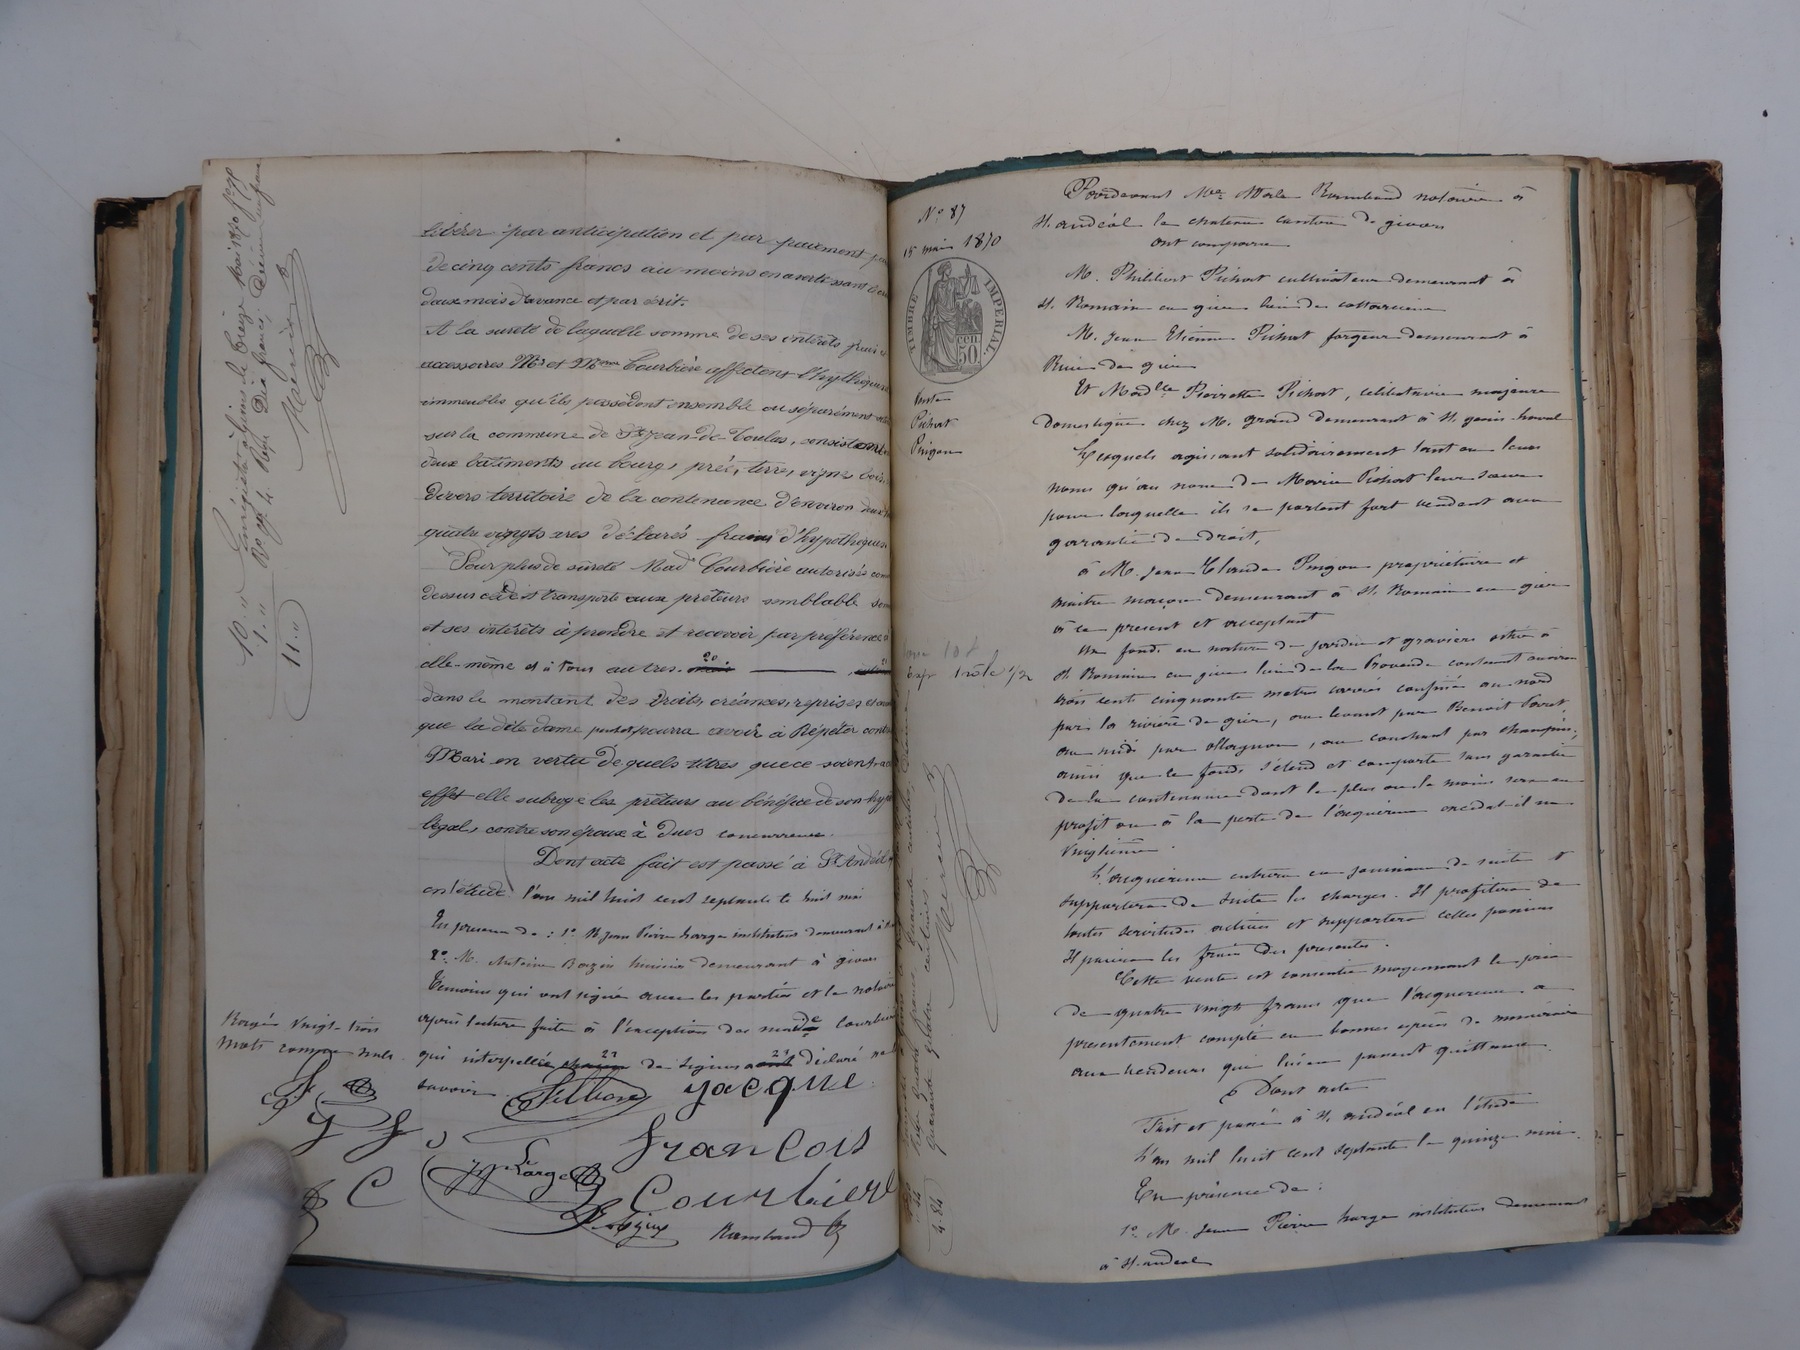 libérer par anticipation et par paiement
de cinq cents francs au moins en avertissant
deux mois d'avance et par écrit.
A la sureté de laquelle somme de ses intérêts frais et
accessoires Mr et Mme Courbière affectent et hypothèquent
immeubles qu'ils possèdent ensemble ou séparément
sur la commune de St Jean-de-Toulas, consistant en
deux batiments au bourg, prés, terres, vignes bois,
divers territoire de la contenance d'environ deux
quatre vingts ares déclarés francs d'hypothèques
Pour plus de sureté Mad Courbière autorisée comme
dessus cède et transporte aux prêteurs semblable somme
et ses intérêts à prendre et recevoir par préférence à
elle-même et à tous autres.
dans le montant des droits, créances, reprises et
que la dite dame pourra avoir à Répéter contre
Mari en vertu de quels titres que ce soient, à cet
effet elle subroge les prêteurs au bénéfice de son hyp
légale contre son époux à dues concurrence.
Dont acte fait est passé à St Andéol
en l'étude l'an mil huit cent septante le huit mai
En présence de : 1° M Jean Pierre Large instituteur demeurant à
2° M. Antoine Bazin huissier demeurant à givors
Témoins qui ont signé avec les parties et le notaire
après lecture faite à l'exception de made Courbière
qui interpellée de signer a déclaré ne
savoir
Rayés Vingt-trois
mots comme nuls.
Jacque
françois
Courbière
JP Large
Rambaud
Enrégistré à Givors le treize Mai 1870 fo 78
Ro 994. Reçu Dix francs, Décime un franc
Mercier
10 "
1 "
11 "
No 87
15 mai 1870
TIMBRE IMPÉRIAL
50 cen
Vente
Pichat
Pingon
Exp 1 rôle 1/2
Mercier
4.84
Pardevant Me Rambaud notaire à
St andéol le chateau canton de givors
ont comparu
M. Philibert Pichat cultivateur demeurant à
St. Romain en gier lieu de
M. Jean Etienne Pichat forgeur demeurant à
Rive de gier
Et Madlle Pierrette Pichat, célibataire majeure
domestique chez M. grand demeurant à St genis-laval
Lesquels agissant solidairement tant en leurs
noms qu'au nom de Marie Pichat leur sœur
pour laquelle ils se portent fort vendent avec
garantie de droit,
à M. Jean Claude Pingon propriétaire et
maitre maçon demeurant à St. Romain en gier
à ce présent et acceptant
un fonds en nature de jardin et graviers situé à
St Romain en gier lieu de la Provende contenant environ
trois cent cinquante mètres carrés confiné au nord
par la rivière de gier, au levant par Benoit
au midi par, au couchant par
ainsi que ce fonds s'étend et comporte sans garantie
de la contenance dont le plus ou le moins sera au
profit ou à la perte de l'acquéreur excédat-il un
vingtième.
L'acquéreur entrera en jouissance de suite et
supportera de suite les charges. Il profitera de
toutes servitudes actives et supportera celles passives
Il paiera les frais des présentes.
Cette vente est consentie moyennant le prix
de quatre vingt francs que l'acquéreur a
présentement compté en bonnes espèces de numéraire
aux vendeurs qui lui en passent quittance
Dont acte
Fait et passé à St. andéol en l'étude
L'an mil huit cent septante le quinze mai
En présence de :
1° M. Jean Pierre Large instituteur demeurant
à St. andéol